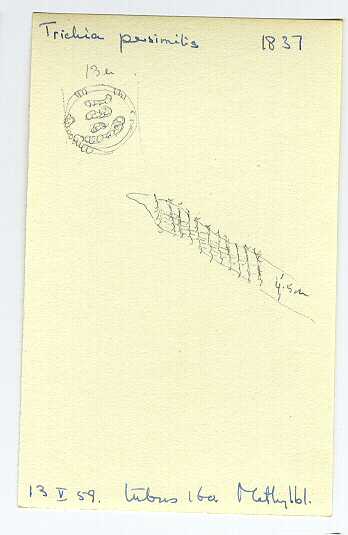 Trichia persimilis 1837
13 µ
4.5 µ
13 V 59. tubus 160 Methylbl.